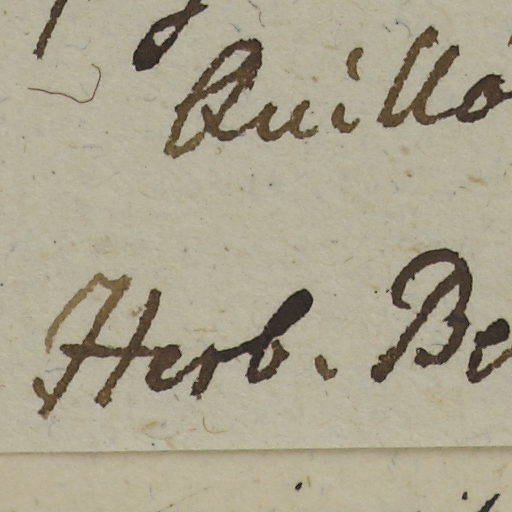 Quillo
Herb. Be